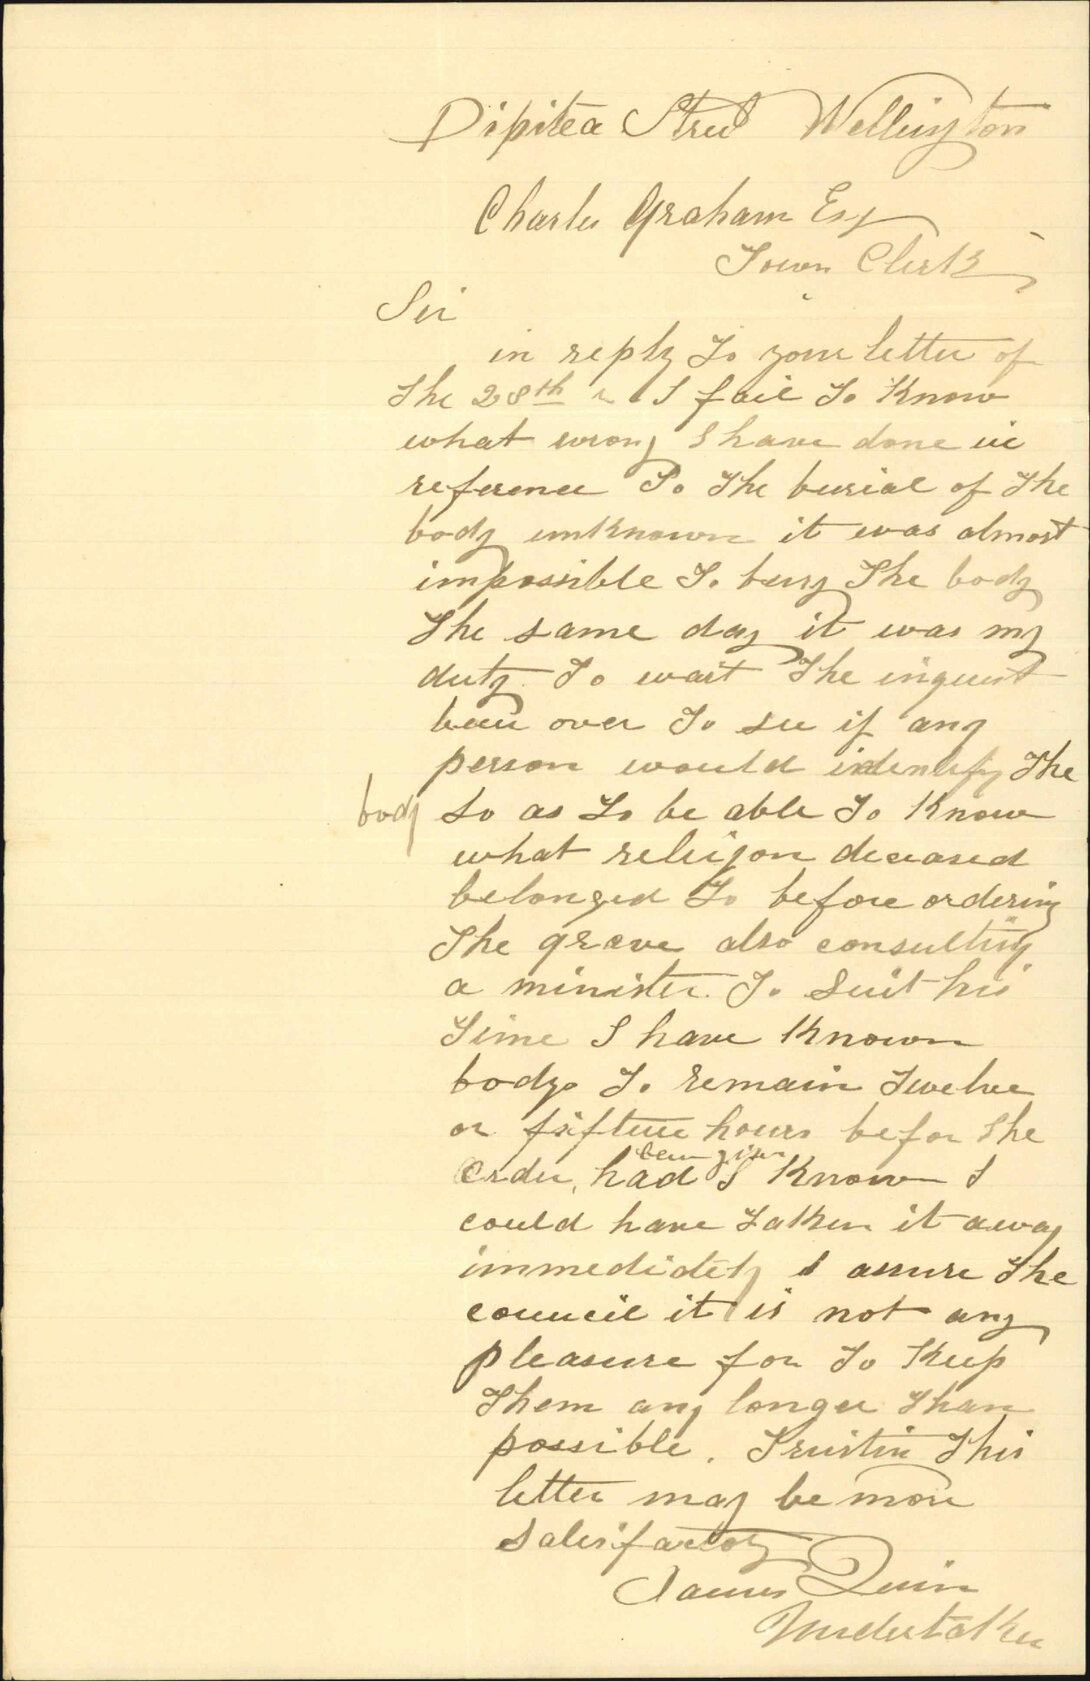 Pipitea Street Wellington
Charles Graham Esq
Town Clerk
Sir
in reply to your letter of
the 28th I fail to know
what wrong I have done in
reference to the burial of the
body unknown it was almost
impossible to bury the body
the same day it was my
duty to wait the inquest
been over to see if any
person would indentify the
body so as to be able to know
what religon deceased
belonged to before ordering
the grave also consulting
a minister to suit his
time I have known
bodys to remain twelve
or fifteen hours before the
order been given
had I know I
could have taken it away
immedidetly I assure the
council it is not any
pleasure for to keep
them any longer than
possible. Trustin this
letter may be more
satisfactory
James Quin
Undertaker